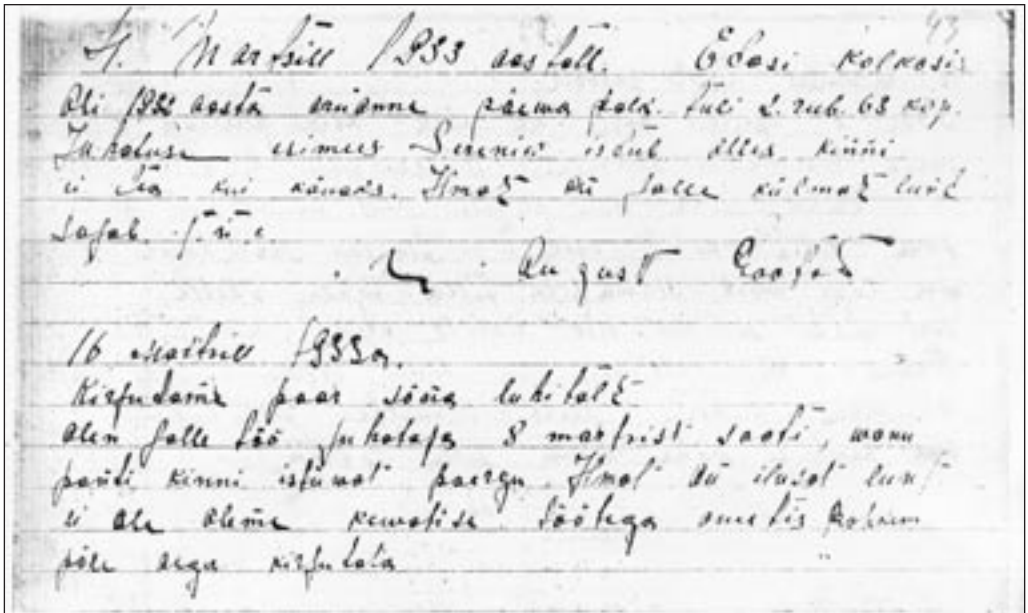 43
4. Martsill 1933 aastall. Edasi kolkosi
Oli 1932 aasta päewa tuli 2. rub. 63 kop.
Juhatuse esimees istub alles kinni
ei tea kui kauaks. Ilmat on jälle külmat lunt
sajab. j.n.e.
August
16 martsill 1933a.
Kirjudame paar sõna luhitalt
Olen jälle töö juhataja 8 martsist saati, wana
panti kinni istuwat praegu. Ilmat on ilusat lunt
ei ole oleme kewatise töötega ametis rohkem
põle aega kirjutata